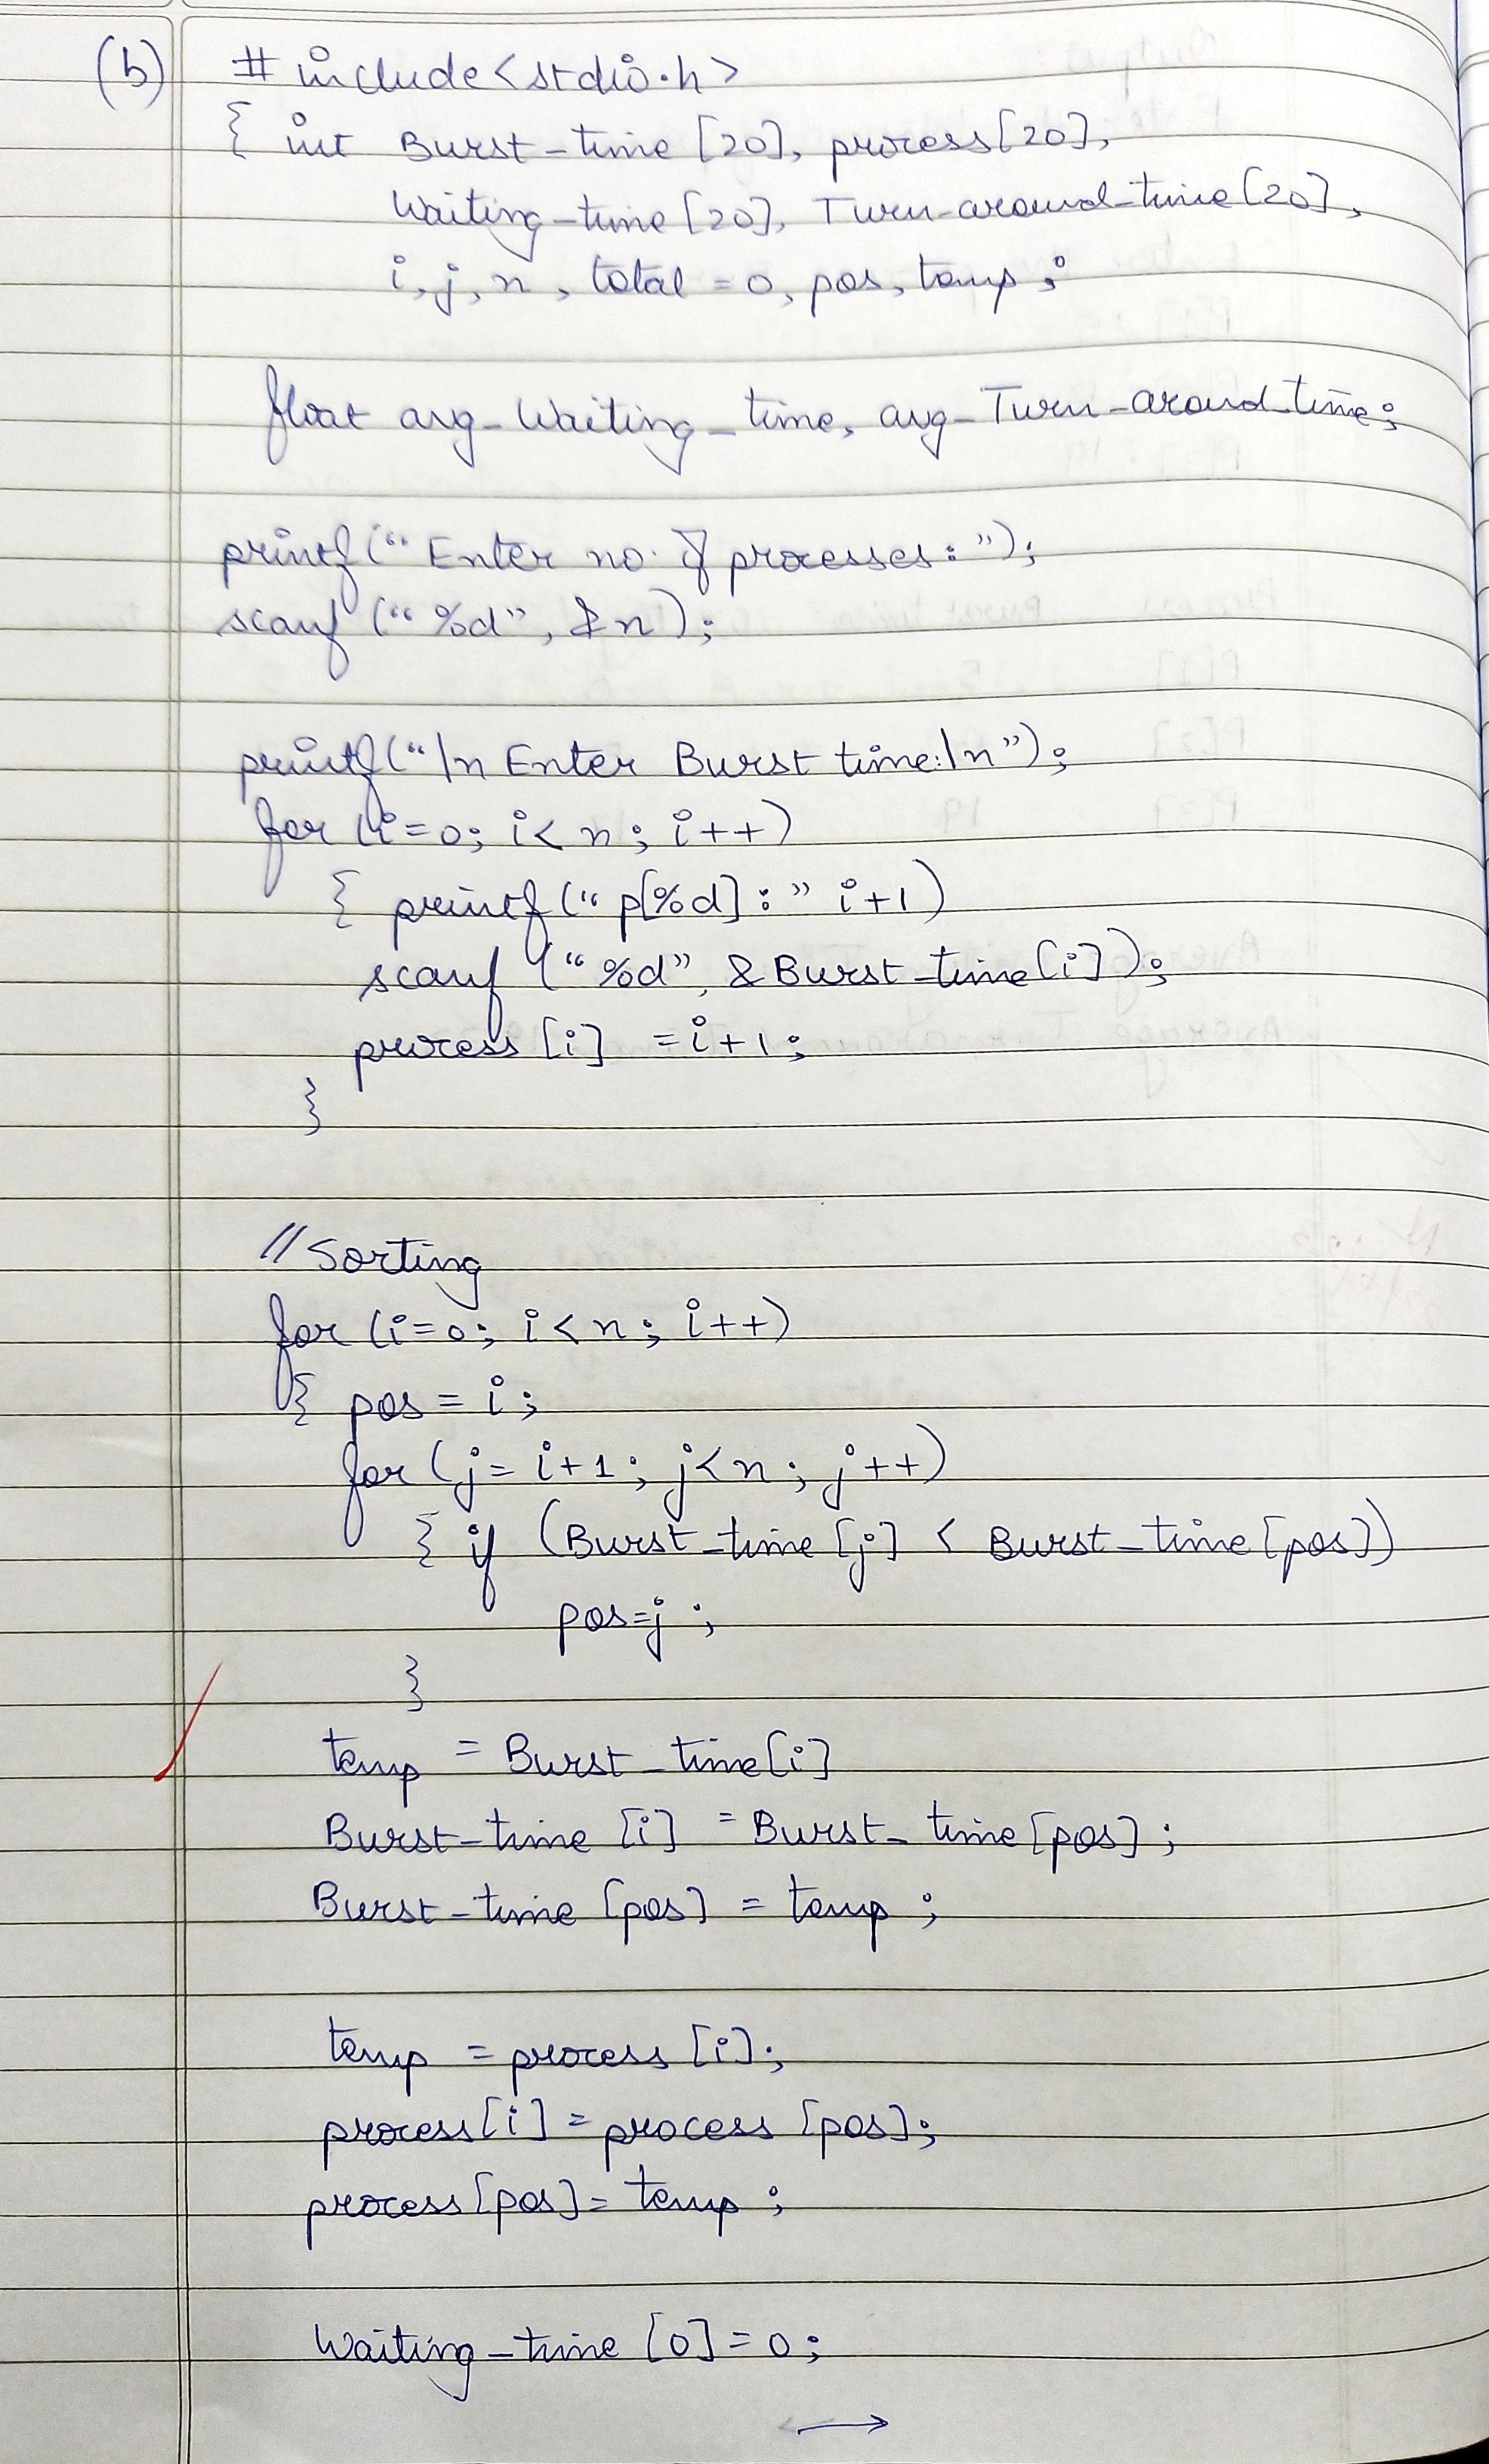 (b) # include<stdio.h>
{ int Burst_time [20], process[20],
Waiting_time[20], Turn_around_time[20],
i, j, n, total = 0, pos, temp ;
float avg_Waiting_time, avg_Turn_around_time;
printf(“ Enter no. of processes: ”);
scanf (“ %d”, &n);
printf(“\n Enter Burst time:\n”);
for (i=0; i< n ; i++)
{ printf(“ p[%d] : ” i+1)
scanf (“ %d”, &Burst_time[i]);
process [i] = i+1;
}
// Sorting
for (i=0; i<n; i++)
{ pos = i;
for (j= i+1; j<n; j++)
{ if (Burst_time [j] < Burst_time [pos])
pos=j ;
}
temp = Burst_time[i]
Burst_time [i] = Burst_time[pos] ;
Burst_time [pos] = temp ;
temp = process [i];
process[i] = process [pos];
process[pos] = temp ;
Waiting_time [0] = 0 ;
→